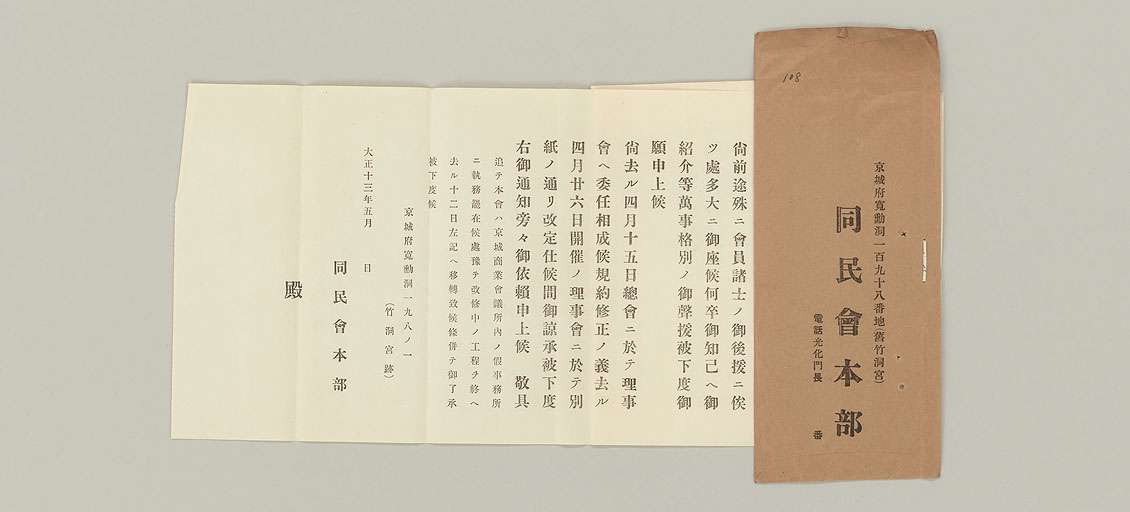 108
京城府寛勳洞一百九十八番地(舊竹洞宮)
同民會本部
電話光化門長　　番
尙前途殊ニ會員諸士ノ御後援ニ俟
ツ處多大ニ御座候何卒御知己ヘ御
紹介等萬事格別ノ御聲援被下度御
願申上候
尙去ル四月十五日總會ニ於テ理事
會ヘ委任相成候規約修正ノ義去ル
四月廿六日開催ノ理事會ニ於テ別
紙ノ通リ改定仕候間御諒承被下度
右御通知旁々御依賴申上候　敬具
追テ本會ハ京城商業會議所內ノ假事務所
ニ執務罷在候處豫テ改修中ノ工程ヲ終ヘ
去ル十二日左記ヘ移轉致候條併テ御了承
被下度候
京城府寛勳洞一九八ノ一
(竹洞宮跡)
大正十三年五月　　日
同民會本部
殿